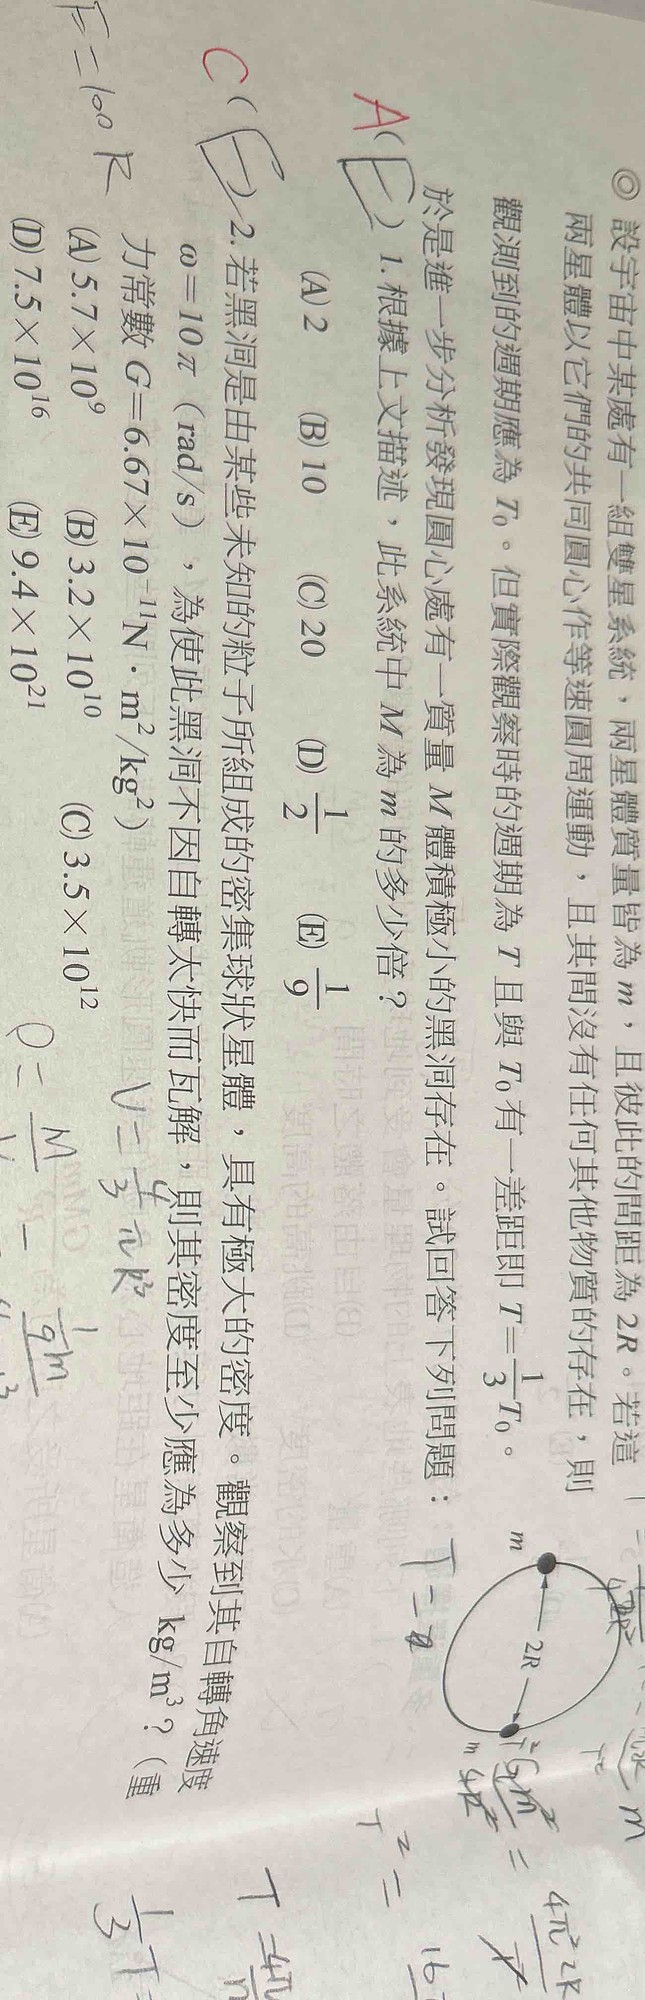 ◎ 設宇宙中某處有一組雙星系統，兩星體質量皆為 m，且彼此的間距為 2R。若這
兩星體以它們的共同圓心作等速圓周運動，且其間沒有任何其他物質的存在，則
觀測到的週期應為 T₀。但實際觀察時的週期為 T 且與 T₀ 有一差距即 T＝1/3 T₀。
於是進一步分析發現圓心處有一質量 M 體積極小的黑洞存在。試回答下列問題：
A( E ) 1. 根據上文描述，此系統中 M 為 m 的多少倍？
(A) 2 (B) 10 (C) 20 (D) 1/2 (E) 1/9
C( E ) 2. 若黑洞是由某些未知的粒子所組成的密集球狀星體，具有極大的密度。觀察到其自轉角速度
ω＝10π（rad/s），為使此黑洞不因自轉太快而瓦解，則其密度至少應為多少 kg/m³？（重
力常數 G＝6.67×10⁻¹¹N·m²/kg²）
(A) 5.7×10⁹ (B) 3.2×10¹⁰ (C) 3.5×10¹²
(D) 7.5×10¹⁶ (E) 9.4×10²¹
m
2R
m
F = 100 R
V = 4/3 πR³